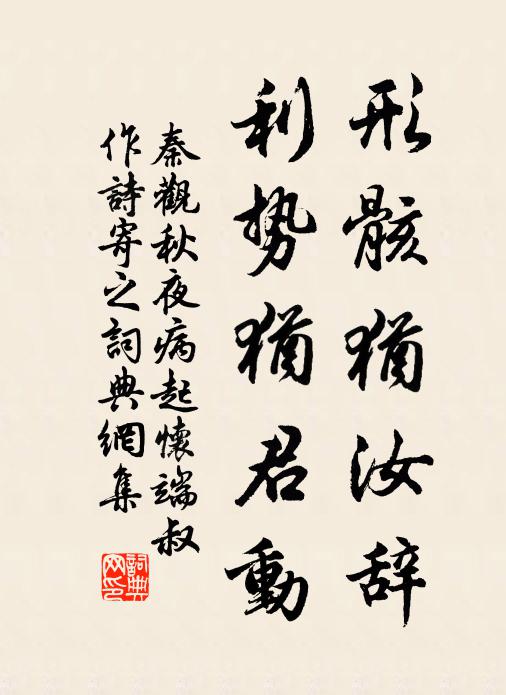 形骸犹汝辞
利势犹君動
秦觀秋夜病起懷端叔
作詩寄之詞典網集
詞典
网印